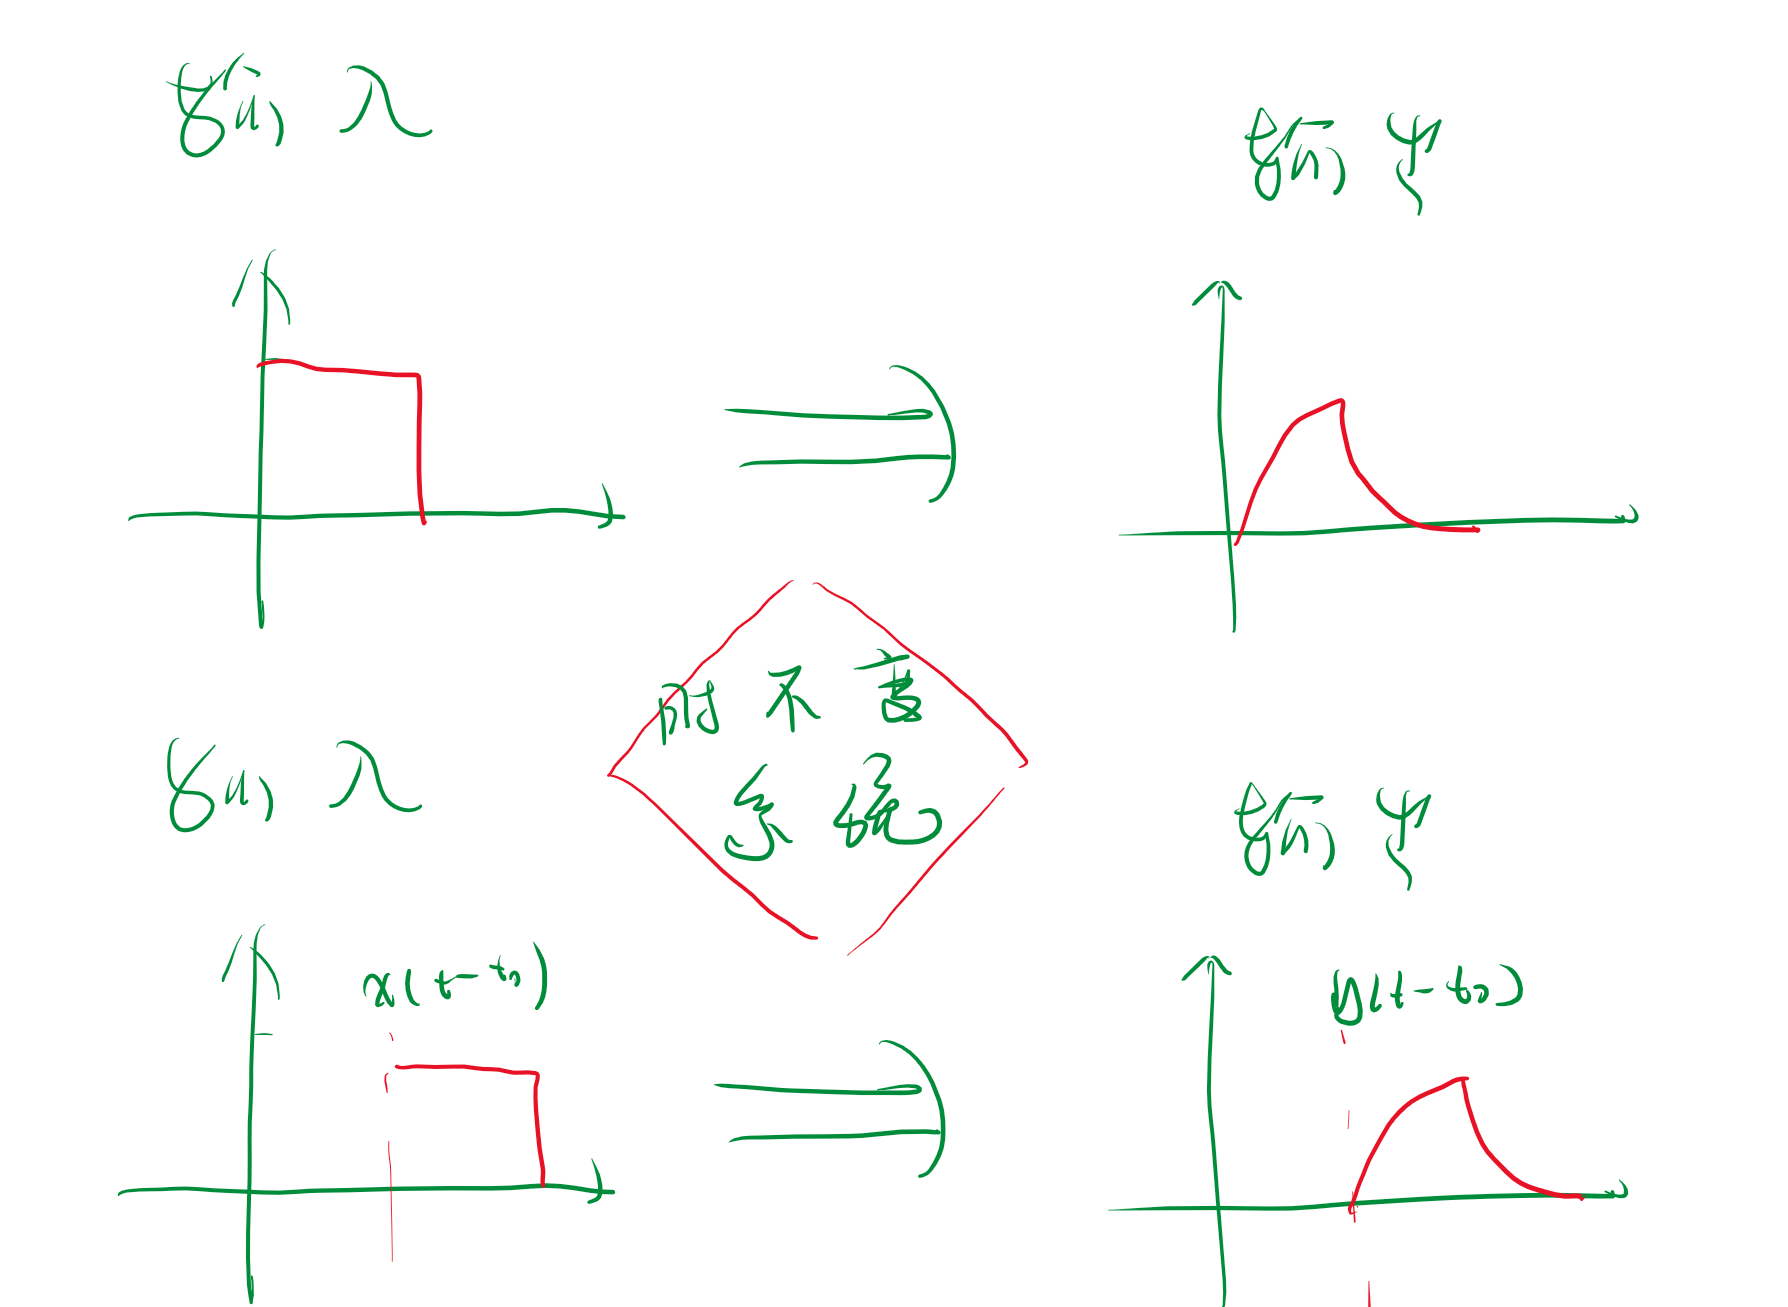 输入
输出
时不变
系统
输入
输出
x(t-t₀)
y(t-t₀)